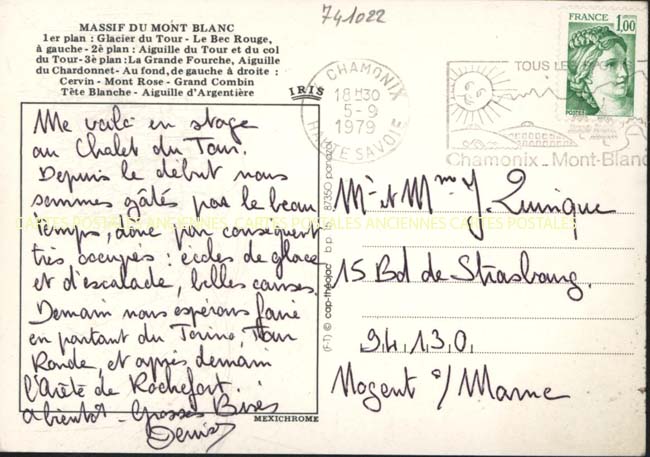 741022
MASSIF DU MONT BLANC
1er plan : Glacier du Tour - Le Bec Rouge,
à gauche - 2è plan : Aiguille du Tour et du col
du Tour - 3è plan : La Grande Fourche, Aiguille
du Chardonnet - Au fond, de gauche à droite :
Cervin - Mont Rose - Grand Combin
Tête Blanche - Aiguille d'Argentière
IRIS
Me voilà en stage
au Chalet du Tour.
Depuis le début nous
sommes gâtés par le beau
temps, donc par conséquent
très occupés : écoles de glace
et d'escalade, belles courses.
Demain nous espérons faire
en partant du Torino, Tour
Ronde, et après demain
l'Arête de Rochefort.
A bientôt - Grosses Bises
Denis
MEXICHROME
(F-T) © cap-théojac b.p. 87350 panazol
CHAMONIX
18H30
5-9
1979
HAUTE SAVOIE
TOUS LES
Chamonix_Mont-Blanc
FRANCE
1,00
POSTES
Mr et Mme J. Quinque
15 Bd de Strasbourg.
94.130.
Nogent s/ Marne
CARTES POSTALES ANCIENNES CARTES POSTALES ANCIENNES CARTES POSTALES